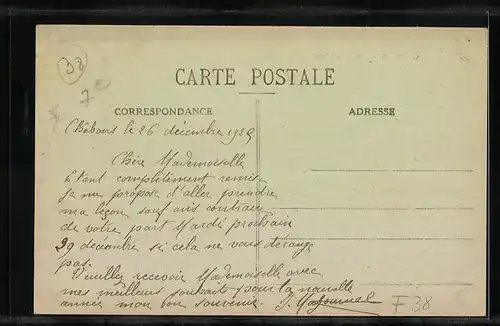 38
7 €
CARTE POSTALE
CORRESPONDANCE
ADRESSE
le 26 décembre 192
Chère Mademoiselle
Étant complètement remis
je me propose d'aller prendre
ma leçon sauf avis contraire
de votre part Mardi prochain
29 decembre si cela ne vous dérange
pas.
Veuillez recevoir Mademoiselle avec
mes meilleurs souhaits pour la nouvelle
année mon bon souvenir.
F 38